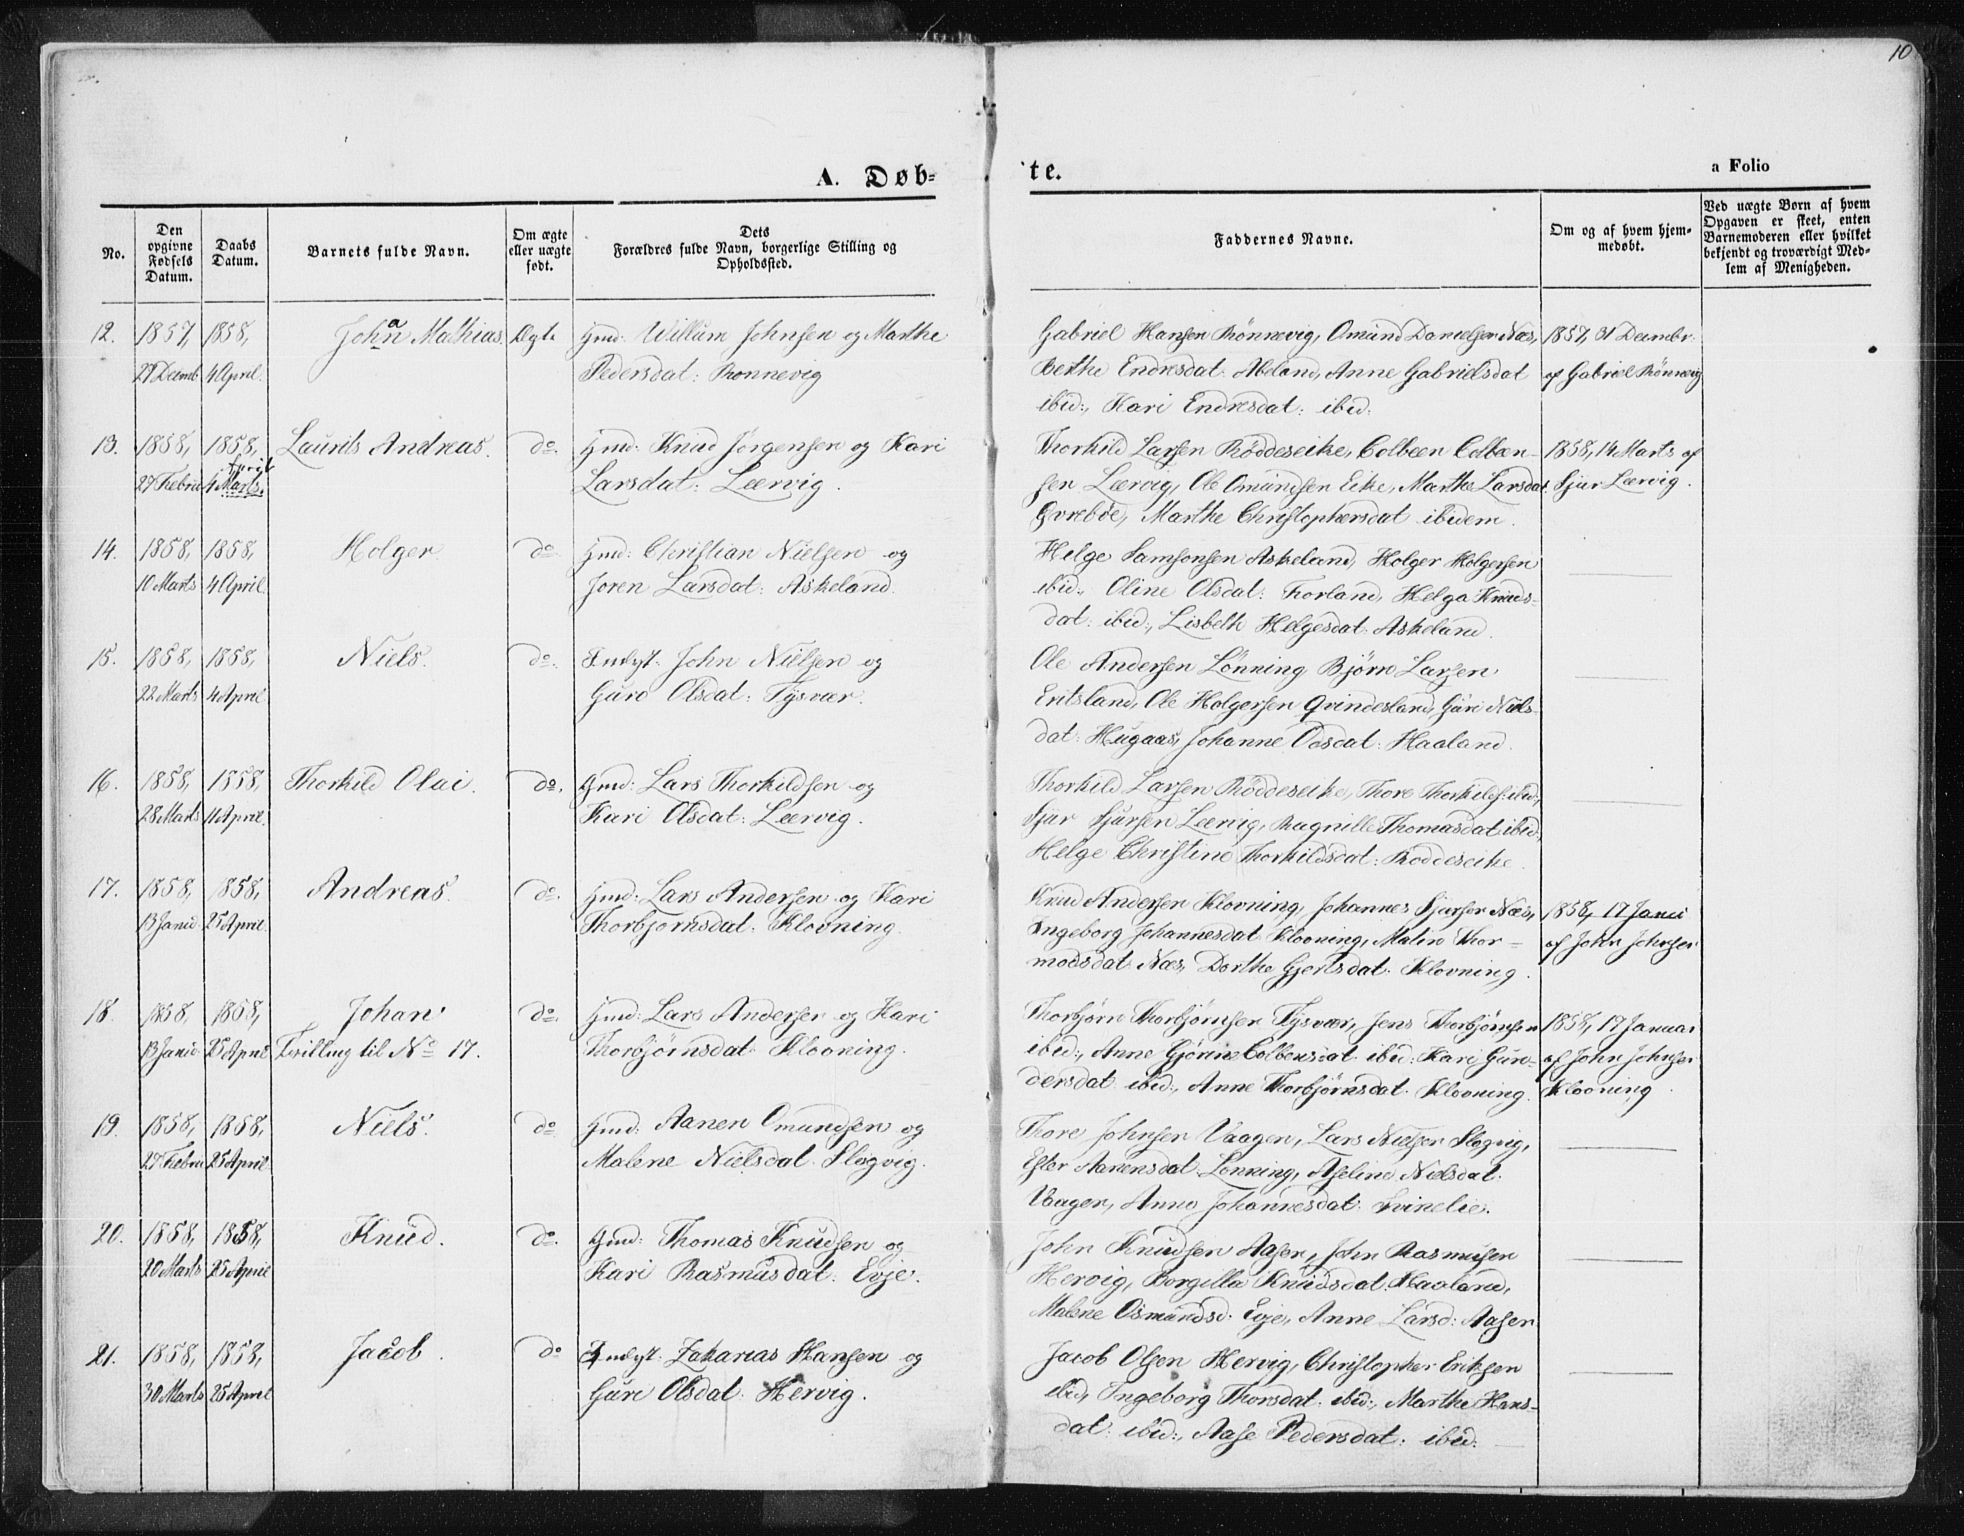 10
A. Døb-
te.
a Folio
No.
Den opgivne Fødsels Datum.
Daabs Datum.
Barnets fulde Navn.
Om ægte eller uægte født.
Dets Forældres fulde Navn, borgerlige Stilling og Opholdssted.
Faddernes Navne.
Om og af hvem hjemmedøbt.
Ved uægte Børn af hvem Opgaven er skeet, enten Barnemoderen eller hvilket bekjendt og troværdigt Medlem af Menigheden.
12. 1857, 1858, Johan Mathias. Ægte Gmd: Willum Johnsen og Marthe
27 Decemb 4 April. Pedersdat: Rønnevig
Gabriel Hansen Rønnevig, Omund Danielsen Næs, 1857, 31 Decembr.
Berthe Endresdat. Abeland, Anne Gabrielsdat af Gabriel Rønnevig
ibid:, Kari Endresdat: ibid:
13. 1858, 1858, Laurits Andreas. do. Gmd: Knud Jørgensen og Kari
April
27 Febru 4 Marts. Larsdat: Leervig.
Thorkild Larsen Røddeseike, Colbeen Colbeen- 1858, 14 Marts af
sen Leervig, Ole Omundsen Eike, Marthe Larsdat. Sjur Leervig.
Gvrebøe, Marthe Christophersdat ibidem.
14. 1858, 1858, Holger do. Gmd: Christian Nielsen og
10 Marts 4 April. Joren Larsdat: Askeland.
Helge Samsonsen Askeland, Holger Holgersen
ibid., Oline Olsdat: Førland, Helga Knuds-
dat: ibid:, Lisbeth Helgesdat: Askeland.
15. 1858, 1858, Niels. do. Indst: John Nielsen og
22 Marts 4 April Guro Olsdat: Tysvær.
Ole Andersen Lønning Bjørn Larsen
Eritsland, Ole Holgersen Qvindesland, Guri Niels-
dat: Hugaas, Johanne Olsdat: Haaland.
16. 1858, 1558, Thorkild Olai. do. Gmd: Lars Thorkildsen og
28 Marts 11 April. Kari Olsdat: Leervig.
Thorkild Larsen Røddeseike, Thore Thorkilds: ibid:,
Sjur Sjursen Leervig, Ragnille Thomasdat ibid.,
Helge Christine Thorkildsdat: Røddeseike.
17. 1858, 1858, Andreas. do. Gmd: Lars Andersen og Kari
13 Janu 25 April. Thorbjørnsdat. Klovning.
Knud Andersen Klovning, Johannes Sjursen Næs, 1858, 17 Janu
Ingeborg Johannesdat. Klovning, Malin Thor- af John Johnsen
modsdat. Næs, Dorthe Gjertsdat. Klovning.
18. 1858, 1858, Johan do. Gmd: Lars Andersen og Kari
13 Janu 25 April Tvilling til No 17. Thorbjørnsdat. Klovning.
Thorbjørn Thorbjørnsen Tysvær, Jens Thorbjørnsen 1858, 17 Januar
ibid:, Anne Gjørine Colbensdat. ibid: Kari Gun- af John Johnsen
dersdat ibid:, Anne Thorbjørnsdat. Klovning. Klovning.
19. 1858, 1858, Niels. do Gmd: Aanen Omundsen og
27 Febru 25 April. Malene Nielsdat. Slogvig.
Thore Johnsen Vaagen, Lars Nielsen Slogvig,
Ester Aanensdat. Lønning, Aseline Nielsdat:
Vaagen, Anne Johannesdat: Svinelie.
20. 1858, 1858, Knud. do. Gmd: Thomas Knudsen og
20 Marts 25 April Kari Rasmusdat: Evje.
John Knudsen Aasen, John Rasmusen
Hervig, Borgilla Knudsdat. Haaland,
Malene Osmundsd: Evje, Anne Larsd: Aasen
21. 1858, 1858, Jacob. do Indst: Zakarias Hansen og
30 Marts 25 April Guri Olsdat: Hervig.
Jacob Olsen Hervig, Christopher Eriksen
ibid, Ingeborg Thorsdat. ibid:, Marthe Hans-
dat: ibid:, Aase Pedersdat: ibid: